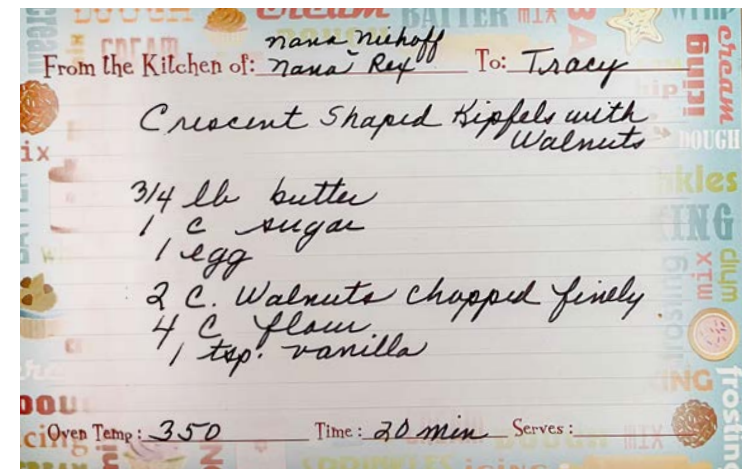 nana Niehoff
From the Kitchen of: nana Rex To: Tracy
Crescent Shaped Kipfels with
Walnuts
3/4 lb butter
1 c sugar
1 egg
2 C. Walnuts chopped finely
4 C flour
1 tsp. vanilla
Oven Temp: 350 Time: 20 min Serves: